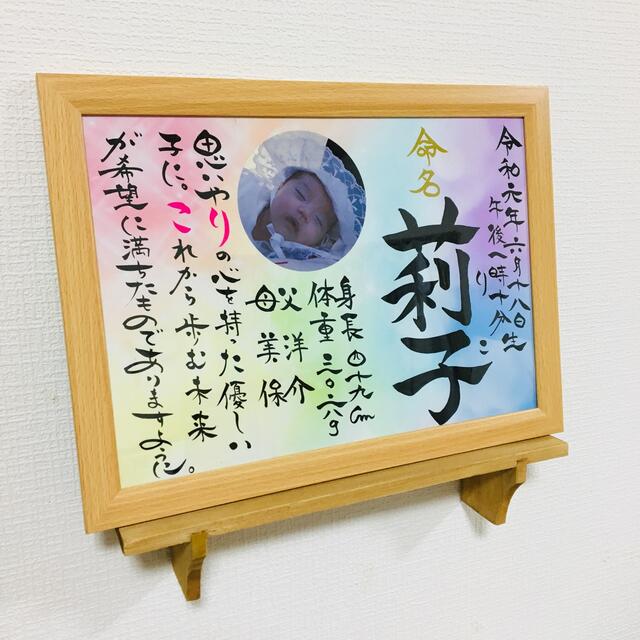 令和元年六月十八日生
午後一時十分
命名
莉子
りこ
身長四十九cm
体重三〇二八g
父洋介
母美保
思いやりの心を持った優しい
子に。これから歩む未来
が希望に満ちたものでありますように。